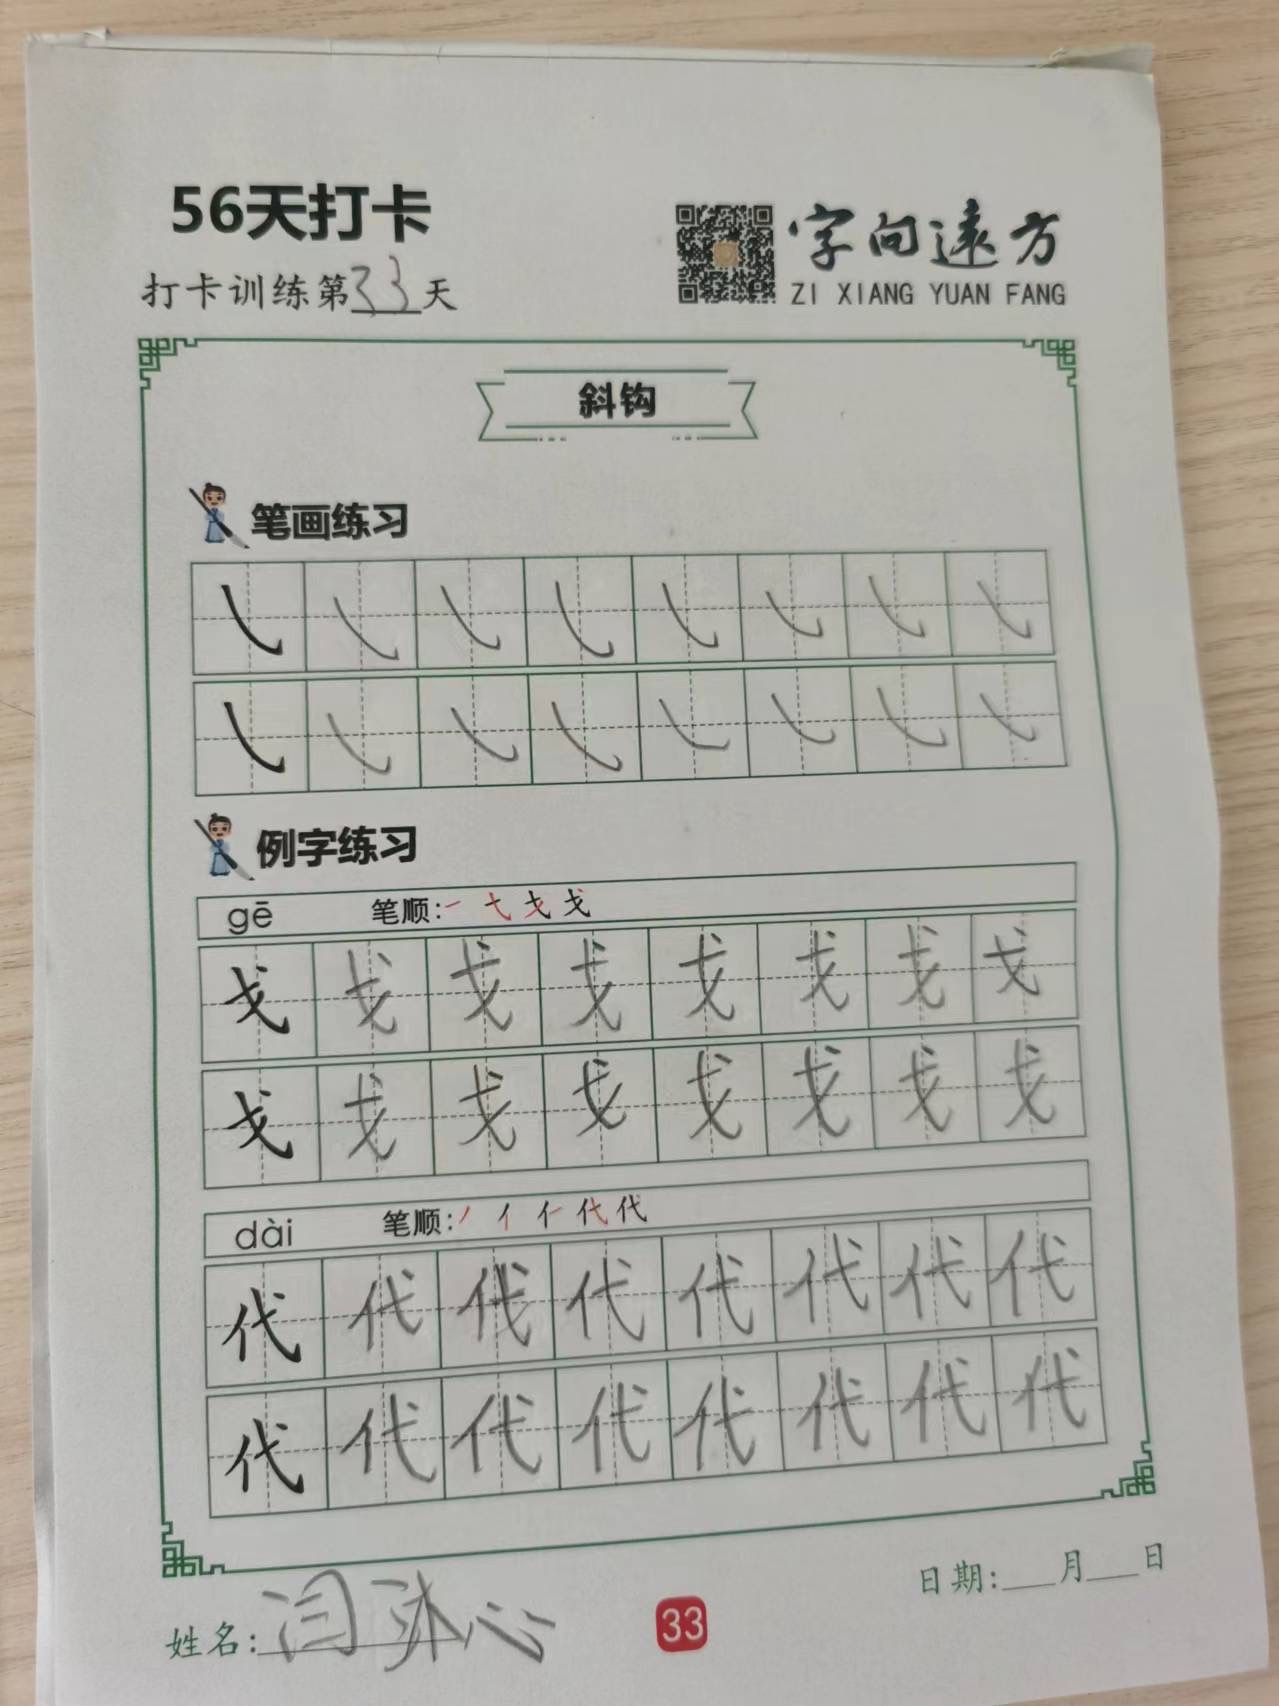 56天打卡
打卡训练第33天
字向远方
ZI XIANG YUAN FANG
斜钩
笔画练习
㇂ ㇂ ㇂ ㇂ ㇂ ㇂ ㇂ ㇂
㇂ ㇂ ㇂ ㇂ ㇂ ㇂ ㇂ ㇂
例字练习
gē 笔顺:一 弋 戈 戈
戈 戈 戈 戈 戈 戈 戈 戈
戈 戈 戈 戈 戈 戈 戈 戈
dài 笔顺:丿 亻 仁 代 代
代 代 代 代 代 代 代 代
代 代 代 代 代 代 代 代
日期:___月___日
姓名:闫 心
33